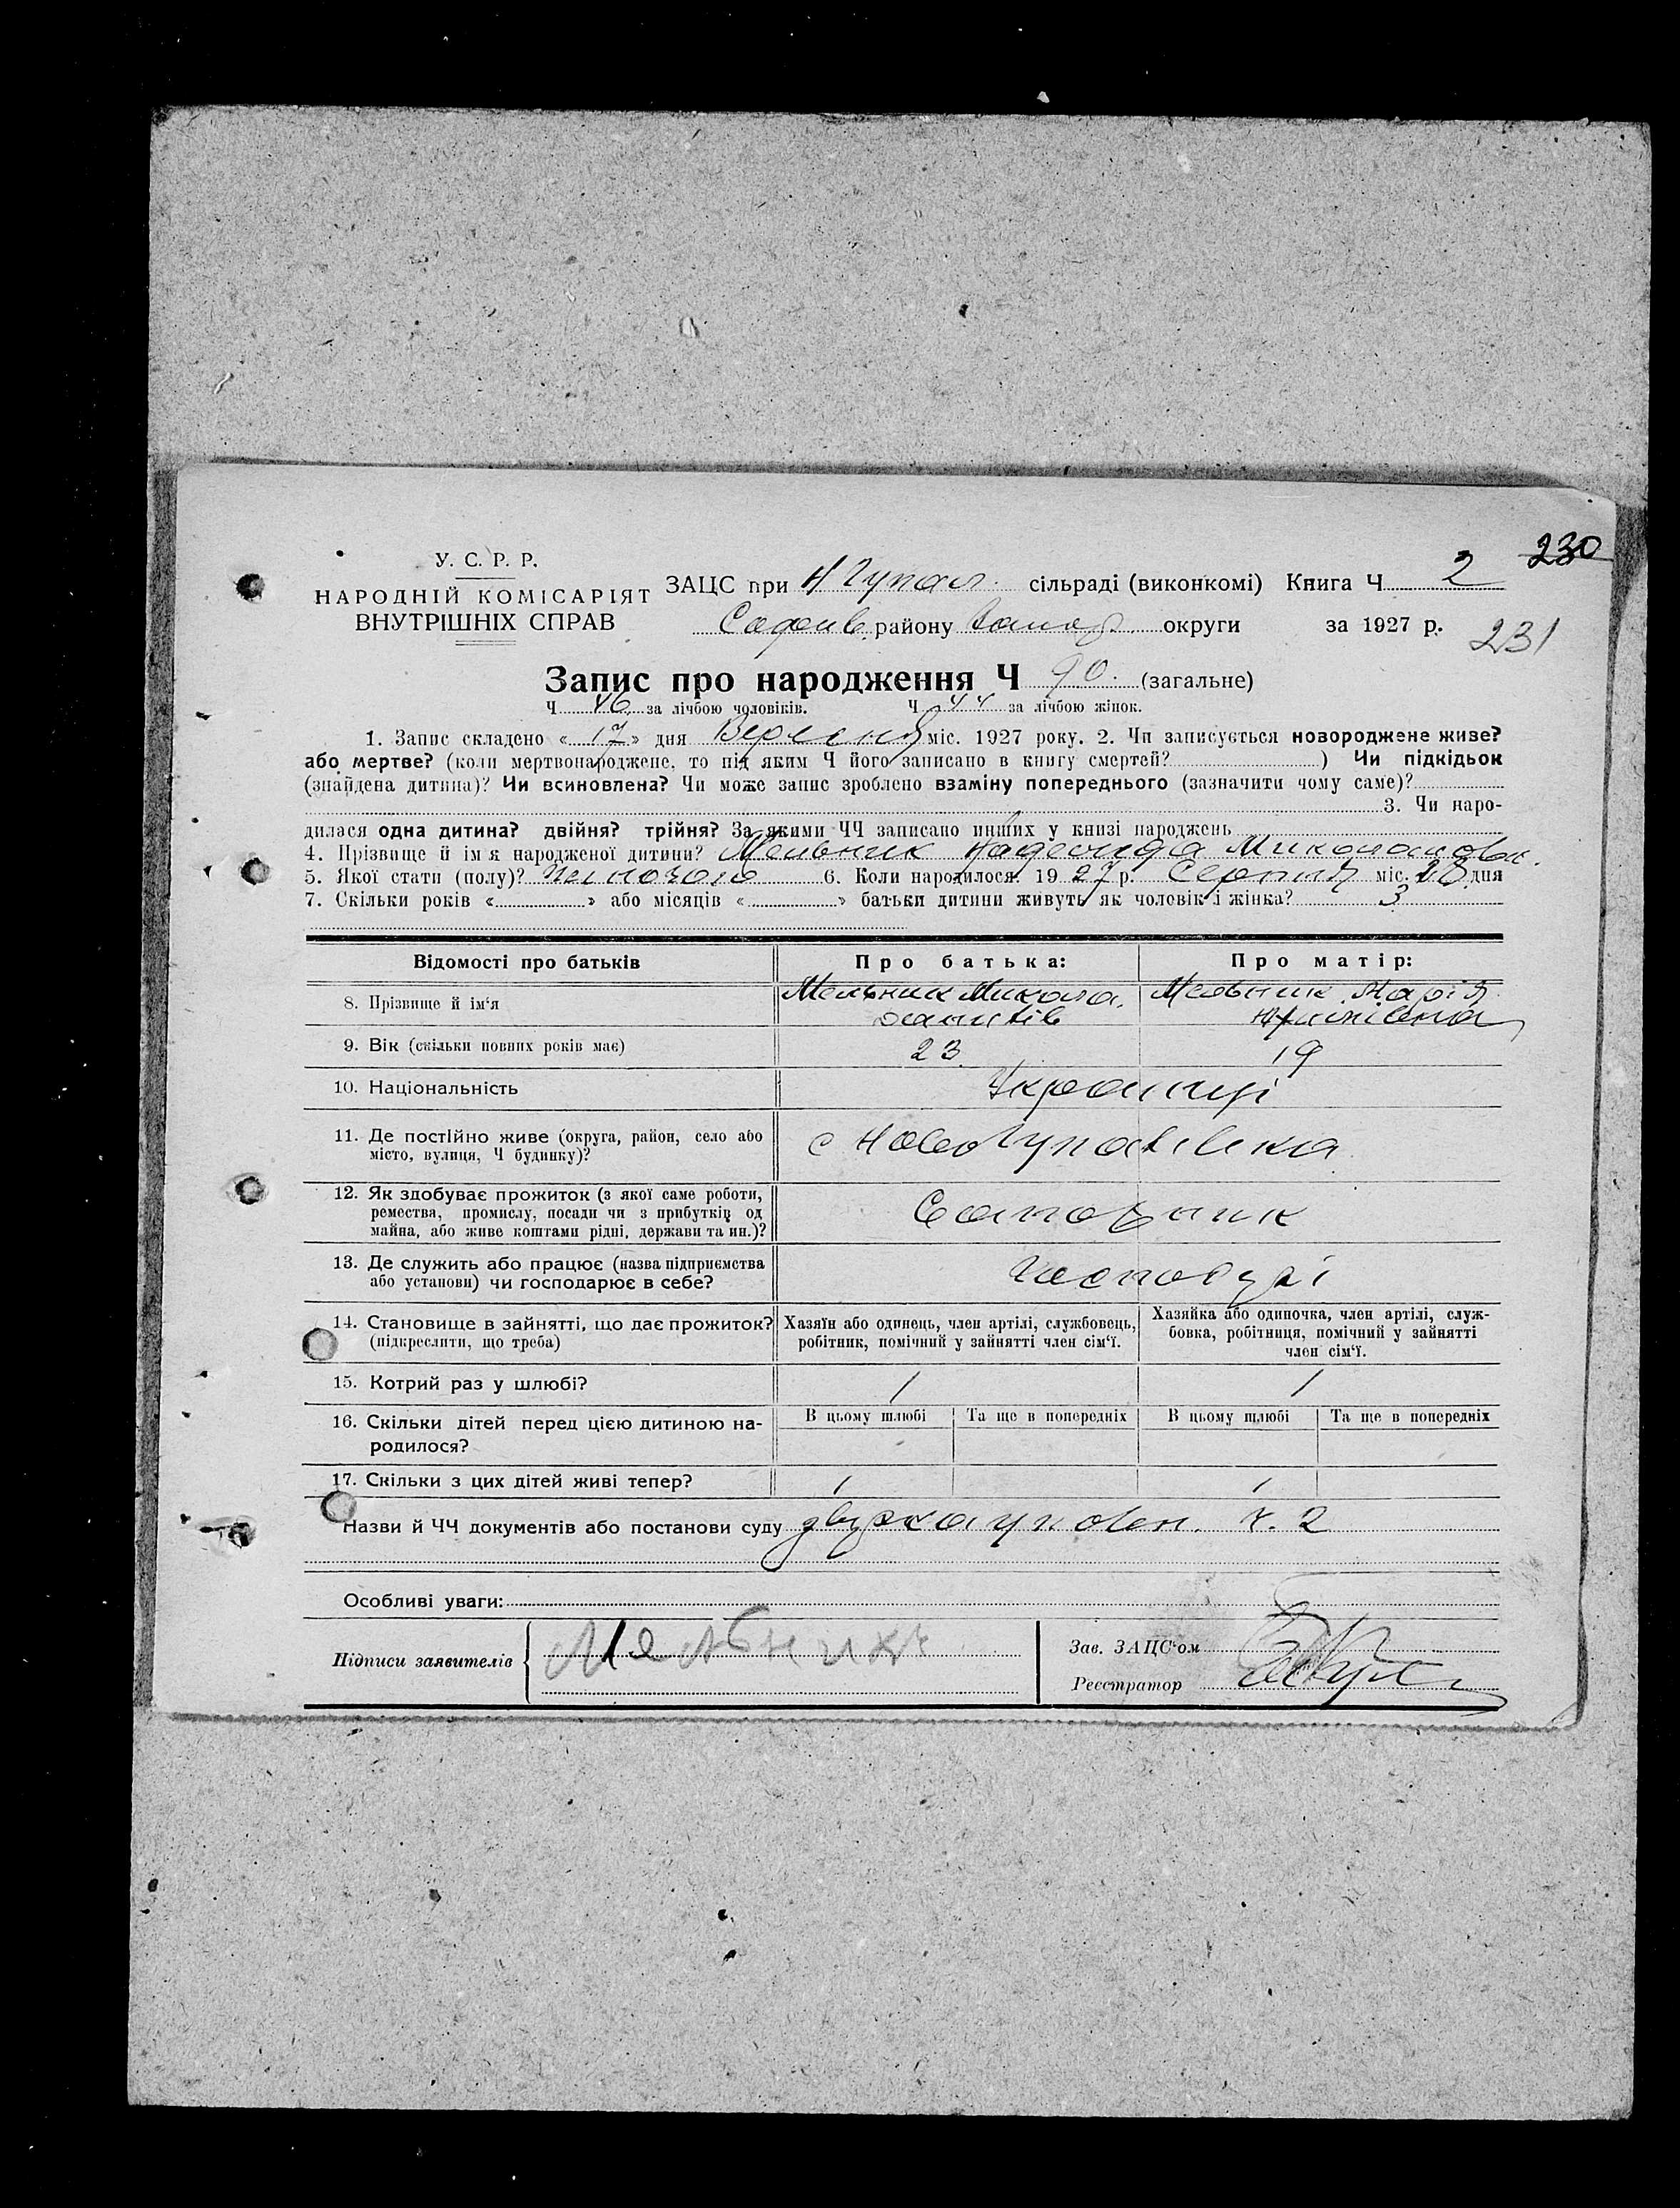 230
У. С. Р. Р.
НАРОДНІЙ КОМІСАРІЯТ
ВНУТРІШНІХ СПРАВ
ЗАЦС при сільраді (виконкомі) Книга Ч 2
району округи за 1927 р.
231
Запис про народження Ч 90. (загальне)
Ч 46 за лічбою чоловіків. Ч 44 за лічбою жінок.
1. Запис складено « 17 » дня Вересня міс. 1927 року. 2. Чи записується новороджене живе?
або мертве? (коли мертвонароджене, то під яким Ч його записано в книгу смертей? ) Чи підкідьок
(знайдена дитина)? Чи всиновлена? Чи може запис зроблено взаміну попереднього (зазначити чому саме)?
3. Чи наро-
дилася одна дитина? двійня? трійня? За якими ЧЧ записано инших у книзі народжень
4. Прізвище й ім'я народженої дитини? Мельник Надежда Миколаєвна.
5. Якої стати (полу)? 6. Коли народилося? 1927 р. Серпня міс. 28 дня
7. Скільки років « » або місяців « » батьки дитини живуть як чоловік і жінка? 3
Відомості про батьків
Про батька:
Про матір:
8. Прізвище й ім‘я
Мельник Микола
Мельник Марія
9. Вік (скільки повних років має)
23
19
10. Національність
Українці
11. Де постійно живе (округа, район, село або
місто, вулиця, Ч будинку)?
с Новогупалівка
12. Як здобуває прожиток (з якої саме роботи,
ремества, промислу, посади чи з прибутків од
майна, або живе коштами рідні, держави та ин.)?
13. Де служить або працює (назва підприємства
або установи) чи господарює в себе?
14. Становище в зайнятті, що дає прожиток?
(підкреслити, що треба)
Хазяїн або одинець, член артілі, службовець,
робітник, помічний у зайнятті член сім‘ї.
Хазяйка або одиночка, член артілі, служ-
бовка, робітниця, помічний у зайнятті
член сім‘ї.
15. Котрий раз у шлюбі?
1
1
16. Скільки дітей перед цією дитиною на-
родилося?
В цьому шлюбі
Та ще в попередніх
В цьому шлюбі
Та ще в попередніх
17. Скільки з цих дітей живі тепер?
1
1
Назви й ЧЧ документів або постанови суду
Особливі уваги:
Підписи заявителів
Зав. ЗАЦС‘ом
Реєстратор